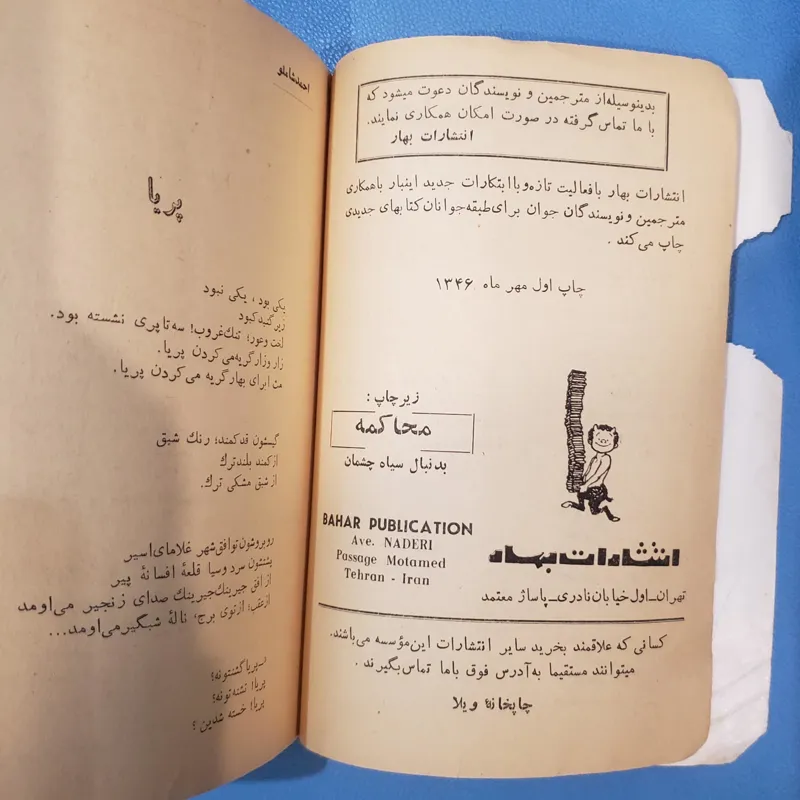 بدینوسیله از مترجمین و نویسندگان دعوت میشود که
با ما تماس گرفته در صورت امکان همکاری نمایند.
انتشارات بهار
انتشارات بهار با فعالیت تازه و با ابتکارات جدید اینبار با همکاری
مترجمین و نویسندگان جوان برای طبقه جوانان کتابهای جدیدی
چاپ می‌کند .
چاپ اول مهر ماه ۱۳۴۶
زیر چاپ :
محاکمه
بدنبال سیاه چشمان
BAHAR PUBLICATION
Ave. NADERI
Passage Motamed
Tehran - Iran
انتشارات بهار
تهران-اول خیابان نادری-پاساژ معتمد
کسانی که علاقمند بخرید سایر انتشارات این مؤسسه می‌باشند.
میتوانند مستقیما به آدرس فوق باما تماس بگیرند .
چاپخانهٔ ویلا
احمد شاملو
پریا
یکی بود ، یکی نبود
زیر گنبد کبود
لخت و عور؛ تنك غروب! سه تا پری نشسته بود.
زار و زار گریه می‌کردن پریا.
مث ابرای بهار گریه می‌کردن پریا.
گیسشون قد کمند؛ رنك شبق
از کمند بلندترك
از شبق مشکی ترك.
روبروشون تو افق شهر غلامای اسیر
پشتشون سرد و سیا قلعهٔ افسانهٔ پیر
از افق جیرینك جیرینك صدای زنجیر می‌اومد
از عقب؛ از توی برج، نالهٔ شبگیر می‌اومد...
-پریا گشنتونه؛
پریا! تشنه تونه؛
پریا! خسته شدین ؟